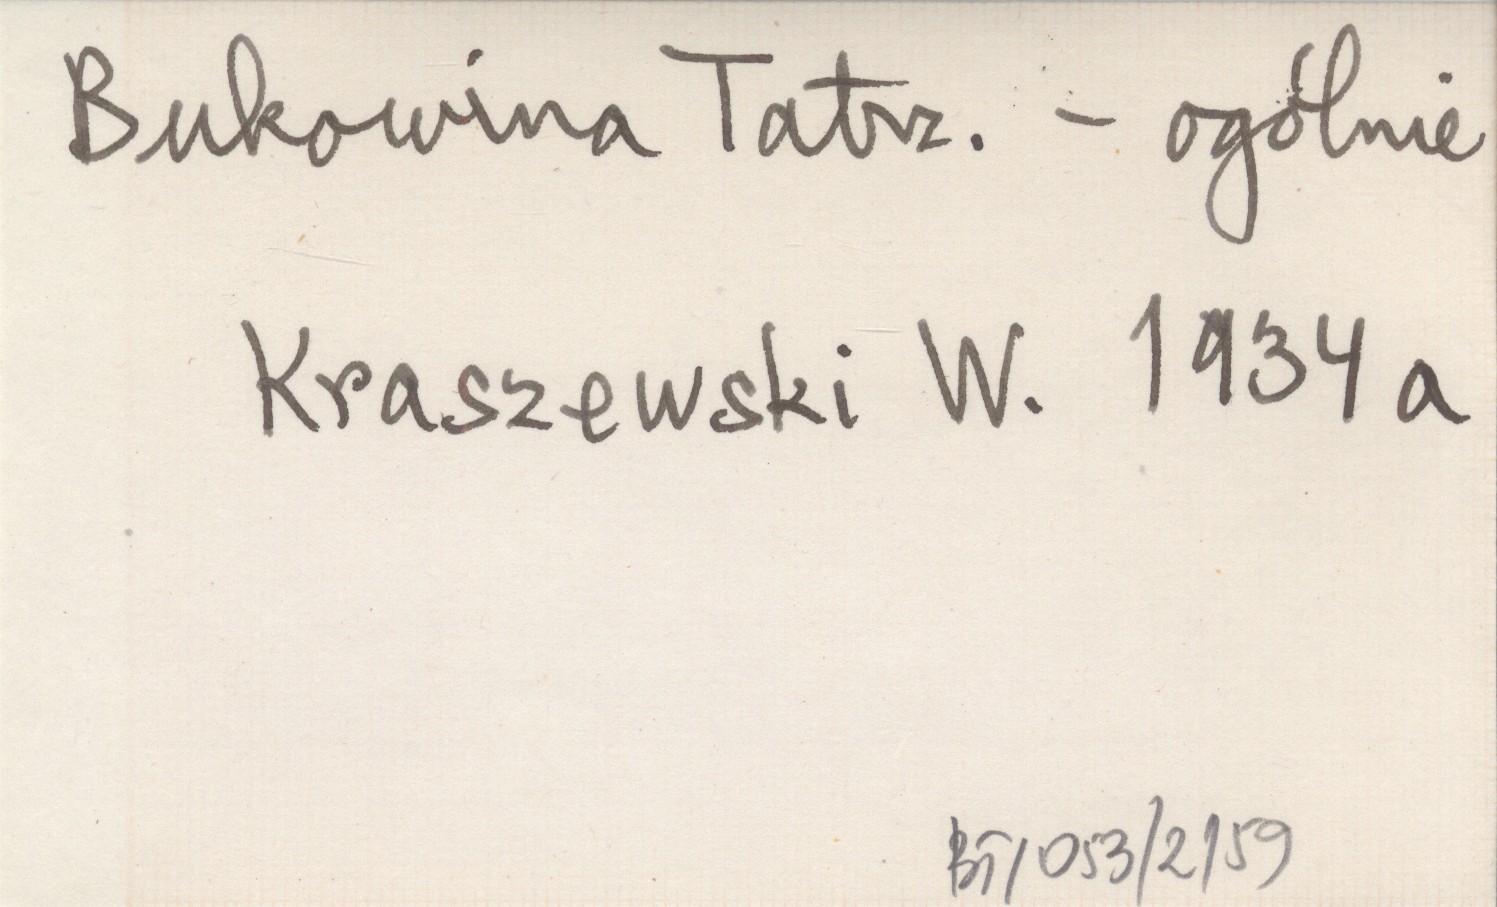 Bukowina Tatrz. - ogólnie
Kraszewski W. 1934a
BT/053/2/59